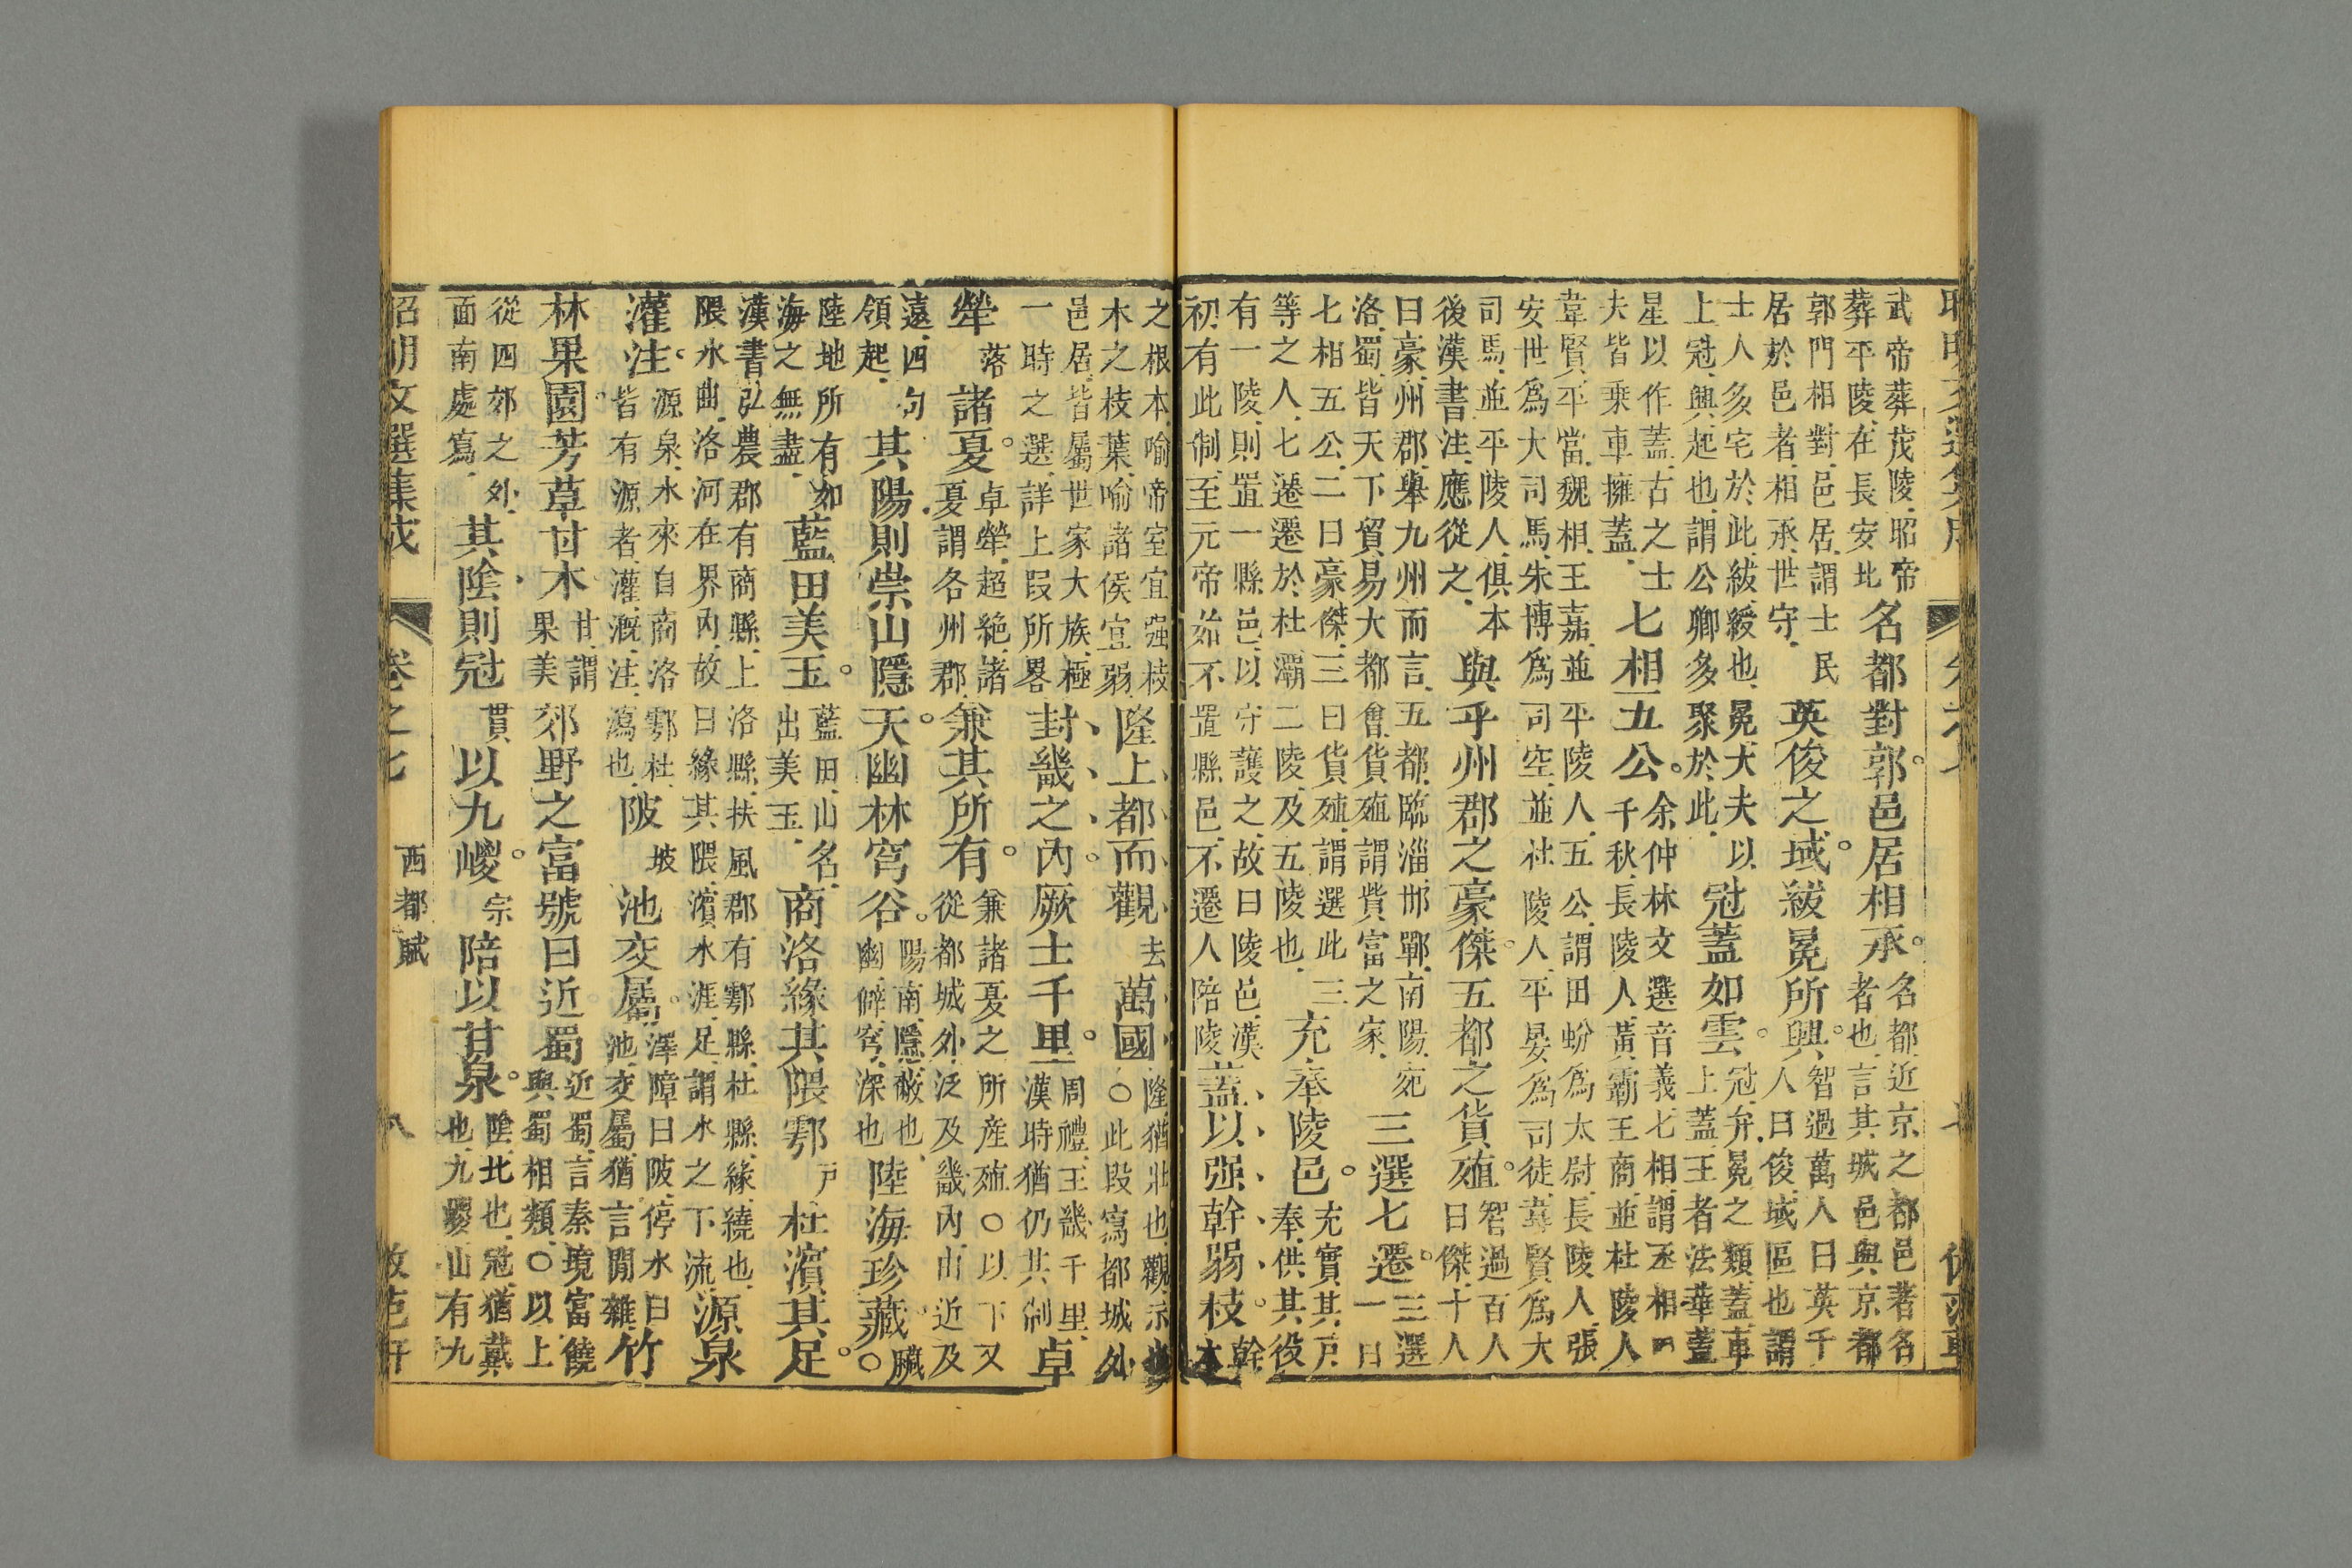 武帝葬茂陵昭帝
葬平陵在長安北
名都對郭邑居相承
名都近京之都邑著名
者也言其城邑與京都
郭門相對邑居謂士民
居於邑者相承世守
英俊之域紱冕所興
智過萬人曰英千
人曰俊域區也謂
士人多宅於此紱綬也冕大夫以
上冠興起也謂公卿多聚於此
冠蓋如雲
冠弁冕之類蓋車
上蓋王者法華蓋
星以作蓋古之士
夫皆乗車擁蓋
七相五公
余仲林文選音義七相謂丞相
千秋長陵人黃霸王商並杜陵人
韋賢平當魏相王嘉並平陵人五公謂田蚡為太尉長陵人張
安世為大司馬朱博為司空並杜陵人平晏為司徒韋賢為大
司馬並平陵人俱本
後漢書注應從之
與乎州郡之豪傑五都之貨殖
智過百人
曰傑十人
曰豪州郡舉九州而言五都臨淄邯鄲南陽宛
洛蜀皆天下貿易大都會貨殖謂貲富之家
三選七遷
三選
一曰
七相五公二曰豪傑三曰貨殖謂選此三
等之人七遷遷於杜灞二陵及五陵也
充奉陵邑
充實其戶
奉供其役
有一陵則置一縣邑以守護之故曰陵邑漢
初有此制至元帝始不置縣邑不遷人陪陵
蓋以强幹弱枝
幹
之根本喻帝室宜强枝
木之枝葉喻諸侯宜弱
隆上都而觀
去
萬國
隆猶壯也觀示
○此段寫都城外
邑居皆屬世家大族極
一時之選詳上段所畧
封畿之內厥土千里
周禮王畿千里
漢時猶仍其制
卓
犖
落
諸夏
卓犖超絶諸
夏謂各州郡
兼其所有
兼諸夏之所産殖○以下又
從都城外泛及畿內由近及
遠四句
領起
其陽則崇山隱天幽林穹谷
陽南隱蔽也
幽僻穹深也
陸海珍藏
臟○
陸地所有如
海之無盡
藍田美玉
藍田山名
出美玉
商洛緣其隈鄠
戶
杜濱其足
漢書弘農郡有商縣上洛縣扶風郡有鄠縣杜縣緣繞也
隈水曲洛河在界內故曰緣其隈濱水涯足謂水之下流
源泉
灌注
源泉水來自商洛鄠杜
皆有源者灌溉注瀉也
陂
坡
池交屬
澤障曰陂停水曰
池交屬猶言閒雜
竹
林果園芳草甘木
甘謂
果美
郊野之富號曰近蜀
近蜀言秦境富饒
與蜀相類○以上
從四郊之外
面南處寫
其陰則冠
貫
以九嵕
宗
陪以甘泉
陰北也冠猶戴
也九嵕山有九
昭明文選集成
卷之七
西都賦
八